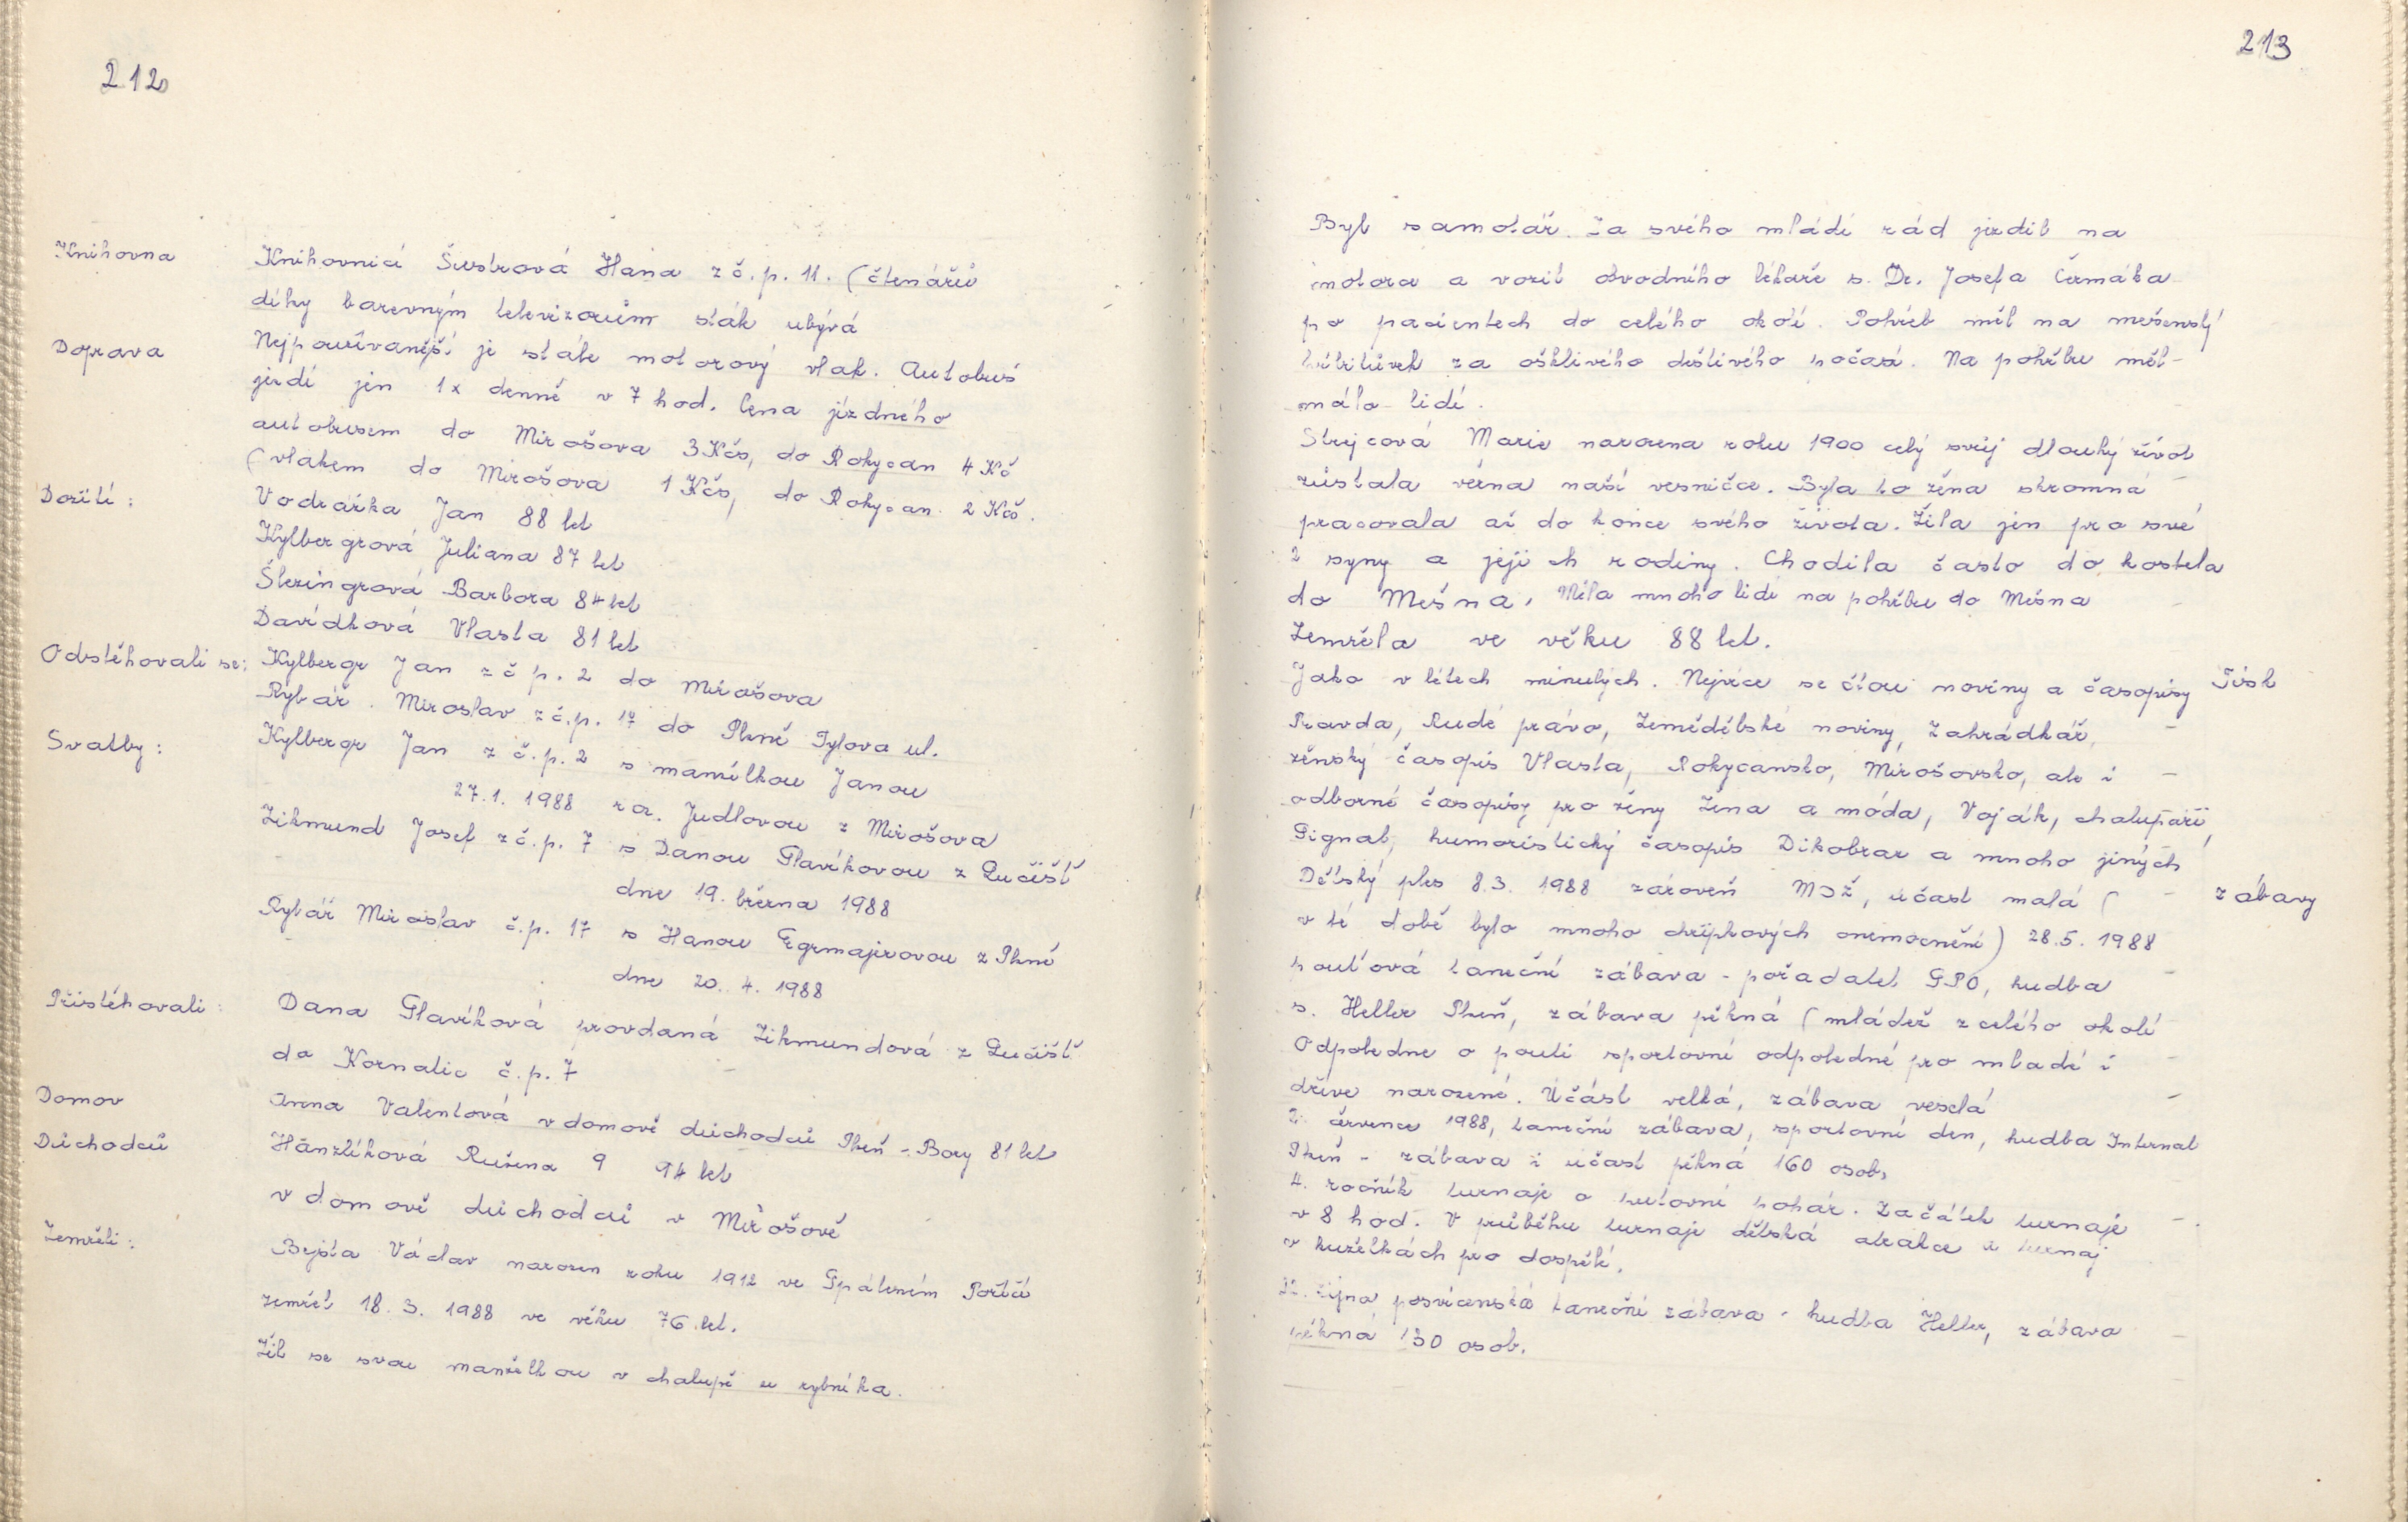 212
Knihovna
Knihovnicí Šustrová Hana z č.p. 11. (čtenářů
díky barevným televizorům sták ubývá
Doprava
Nejpoužívanější je stále motorový vlak. Autobus
jezdí jen 1x denně v 7 hod. Cena jízdného
autobusem do Mirošova 3 Kčs, do Rokycan 4 Kč
(vlakem do Mirošova 1 Kčs, do Rokycan 2 Kčs.
Dožití:
Vodrážka Jan 88 let
Kylbergrová Juliana 87 let
Šlezingrová Barbora 84 let
Davídková Vlasta 81 let
Odstěhovali se:
Kylbergr Jan z č p. 2 do Mirošova
Rybář Miroslav z č.p. 17 do Plzně Tylova ul.
Svatby:
Kylbergr Jan z č.p. 2 s manželkou Janou
27.1. 1988 roz. Judlovou z Mirošova
Zikmund Josef z č.p. 7 s Danou Slavíkovou z Lučišť
dne 19. března 1988
Rybář Miroslav č.p. 17 s Hanou Egrmajerovou z Plzně
dne 20. 4. 1988
Přistěhovali:
Dana Slavíková provdaná Zikmundová z Lučišť
do Kornatic č.p. 7
Domov
Důchodců
Anna Valentová v domově důchodců Plzeň - Bory 81 let
Hánzlíková Ružena 9 94 let
v domově důchodců v Mirošově
Zemřeli:
Bejsta Václav narozen roku 1912 ve Spáleném Poříčí
zemřel 18. 3. 1988 ve věku 76 let.
Žil se svou manželkou v chalupě u rybníka.
213
Byl samotář. Za svého mládí rád jezdil na
motora a vozil obvodního lékaře s. Dr. Josefa Čermáka
po pacientech do celého okolí. Pohřeb měl na mešenský
hřbitůvek za ošklivého deštivého počasí. Na pohřbu měl
málo lidí.
Strejcová Marie narozena roku 1900 celý svůj dlouhý život
zůstala věrna naší vesničce. Byla to žena skromná
pracovala až do konce svého života. Žila jen pro své
2 syny a jejich rodiny. Chodila často do kostela
do Mešna. Měla mnoho lidí na pohřbu do Mešna
Zemřela ve věku 88 let.
Tisk
Jako v létech minulých. Nejvíce se čtou noviny a časopisy
Pravda, Rudé právo, Zemědělské noviny, Zahrádkář,
ženský časopis Vlasta, Rokycansko, Mirošovsko, ale i
odborné časopisy pro ženy Žena a móda, Voják, chalupáři,
Signal, humoristický časopis Dikobraz a mnoho jiných
zábavy
Dětský ples 8.3. 1988 zároveň MDŽ, účast malá (
v té době bylo mnoho chřipkových onemocnění) 28.5. 1988
pouťová taneční zábava - pořadatel SPO, hudba
s. Heller Plzeň, zábava pěkná (mládež z celého okolí
Odpoledne o pouti sportovní odpoledné pro mladé i
dříve narozené. Účást velká, zábava veselá
2. července 1988, taneční zábava, sportovní den, hudba Internal
Plzeň - zábava i účast pěkná 160 osob,
4. ročník turnaje o putovní pohár. Začátek turnaje
v 8 hod. V průběhu turnaje dětská atrakce a turnaj
v kuželkách pro dospělé.
října posvícenská taneční zábava - hudba Heller, zábava
pěkná 130 osob.